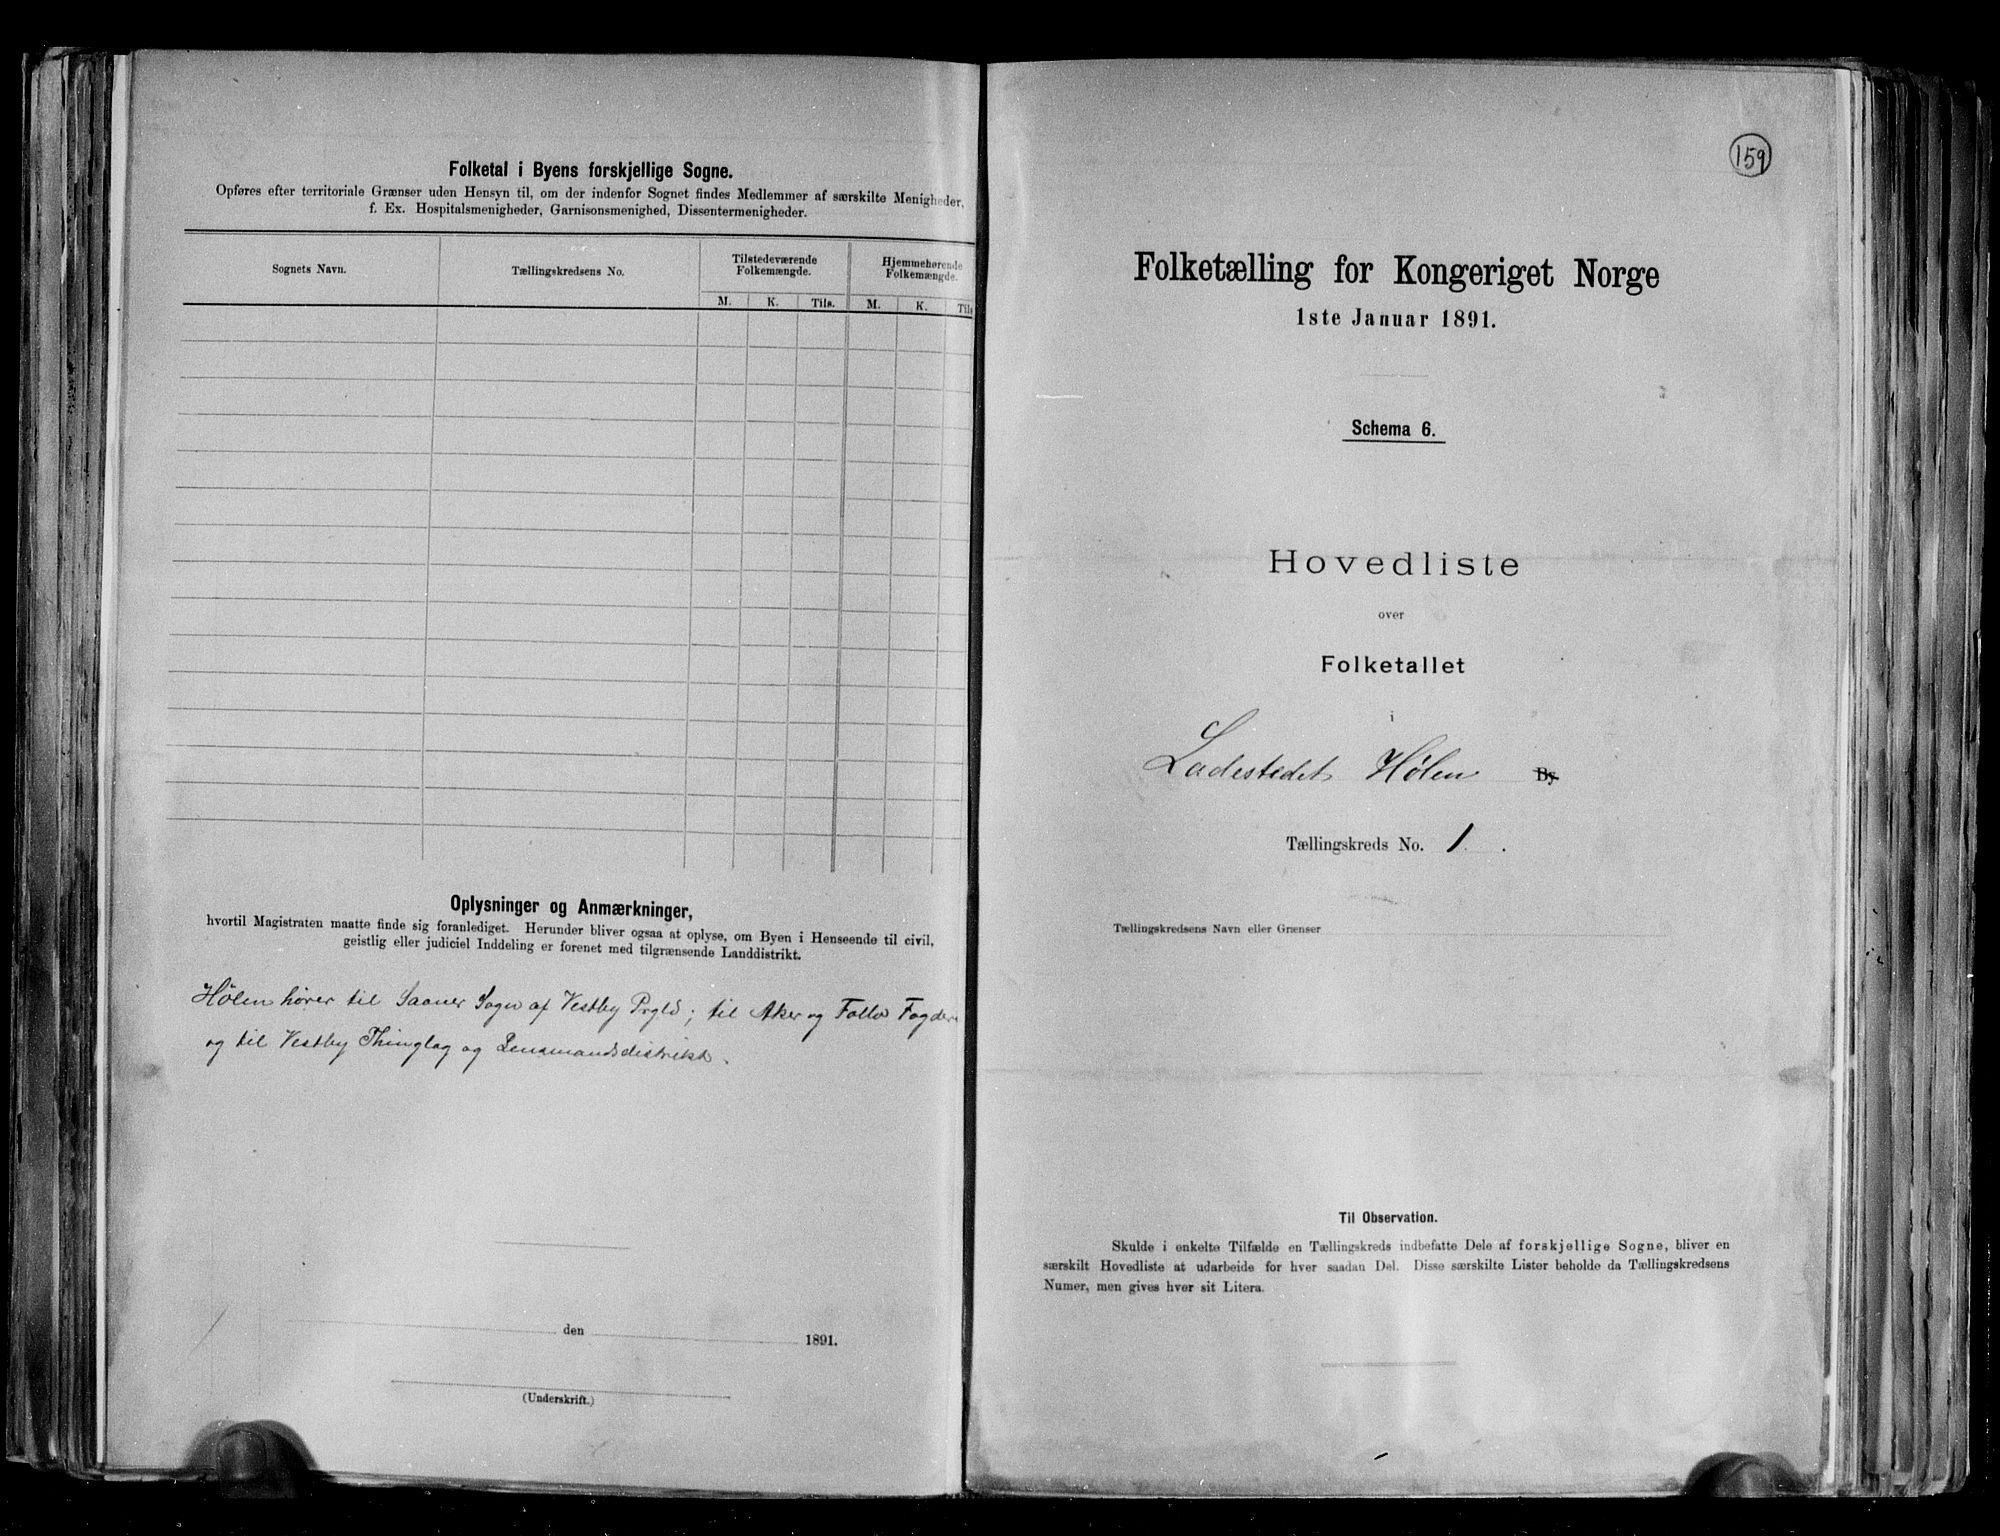 Folketal i Byens forskjellige Sogne.
Opføres efter territoriale Grænser uden Hensyn til, om der indenfor Sognet findes Medlemmer af særskilte Menigheder,
f. Ex. Hospitalsmenigheder, Garnisonsmenighed, Dissentermenigheder.
Sognets Navn.
Tællingskredsens No.
Tilstedeværende
Folkemængde.
Hjemmehørende
Folkemængde.
M. K. Tils. M. K. Tils
Oplysninger og Anmærkninger,
hvortil Magistraten maatte finde sig foranlediget. Herunder bliver ogsaa at oplyse, om Byen i Henseende til civil,
geistlig eller judiciel Inddeling er forenet med tilgrænsende Landdistrikt.
Hølen hører til Saaner Sogn af Vestby Prgld; til Aker og Follo Fogderi
og til Vestby Thinglag og Lensmandsdistrikt.
den 1891.
(Underskrift.)
159
Folketælling for Kongeriget Norge
1ste Januar 1891.
Schema 6.
Hovedliste
over
Folketallet
i
Ladestedet Hølen By
Tællingskreds No. 1.
Tællingskredsens Navn eller Grænser
Til Observation.
Skulde i enkelte Tilfælde en Tællingskreds indbefatte Dele af forskjellige Sogne, bliver en
særskilt Hovedliste at udarbeide for hver saadan Del. Disse særskilte Lister beholde da Tællingskredsens
Numer, men gives hver sit Litera.